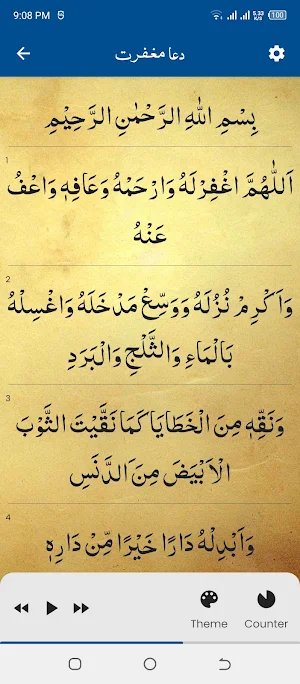 9:08 PM 5.33 K/S 100
دعا مغفرت
بِسْمِ اللهِ الرَّحْمٰنِ الرَّحِيْمِ
1
اَللّٰهُمَّ اغْفِرْلَهُ وَارْحَمْهُ وَعَافِهٖ وَاعْفُ
عَنْهُ
2
وَاَكْرِمْ نُزُلَهُ وَوَسِّعْ مَدْخَلَهُ وَاغْسِلْهُ
بَالْمَاءِ وَالثَّلْجِ وَالْبَرَدِ
3
وَنَقِّهٖ مِنَ الْخَطَايَا كَمَا نَقَّيْتَ الثَّوْبَ
الْاَبْيَضَ مِنَ اَلدَّنَسِ
4
وَاَبْدِلْهُ دَارًا خَيْرًا مِّنْ دَارِهٖ
Theme Counter